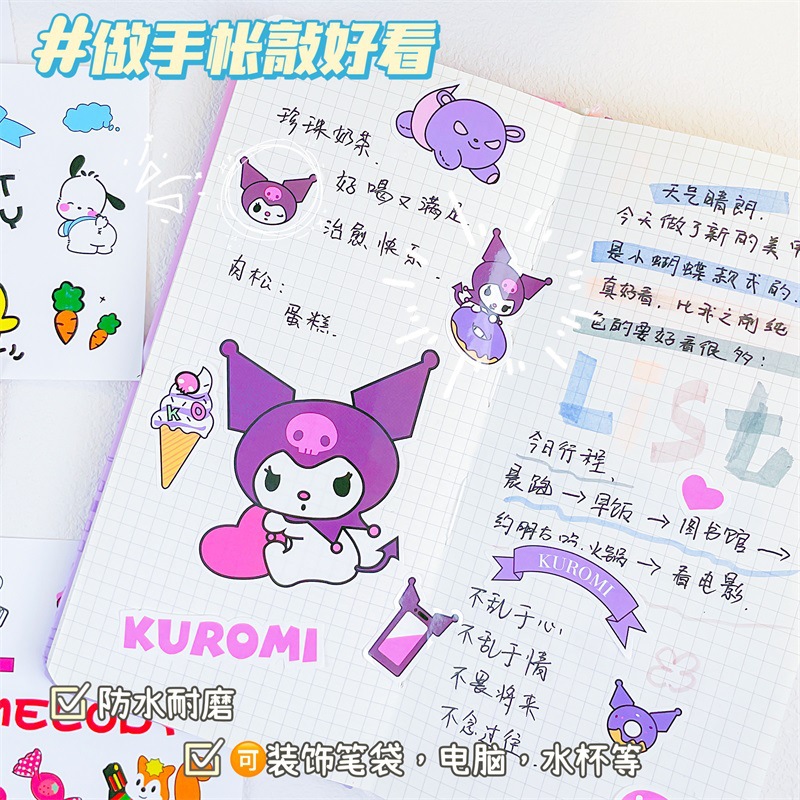 #做手帐敲好看
珍珠奶茶.
好喝又满足.
治愈快乐.
肉松：
蛋糕.
K O
KUROMI
天气晴朗.
今天做了新的美甲
是小蝴蝶款式的.
真好看，比我之前纯
色的要好看很多：
List
今日行程.
晨跑→早饭→图书馆→
约朋友吃.火锅→看电影.
KUROMI
不乱于心,
不乱于情
不畏将来
不念过往.
TY
MELODY
☑防水耐磨
☑可装饰笔袋，电脑，水杯等